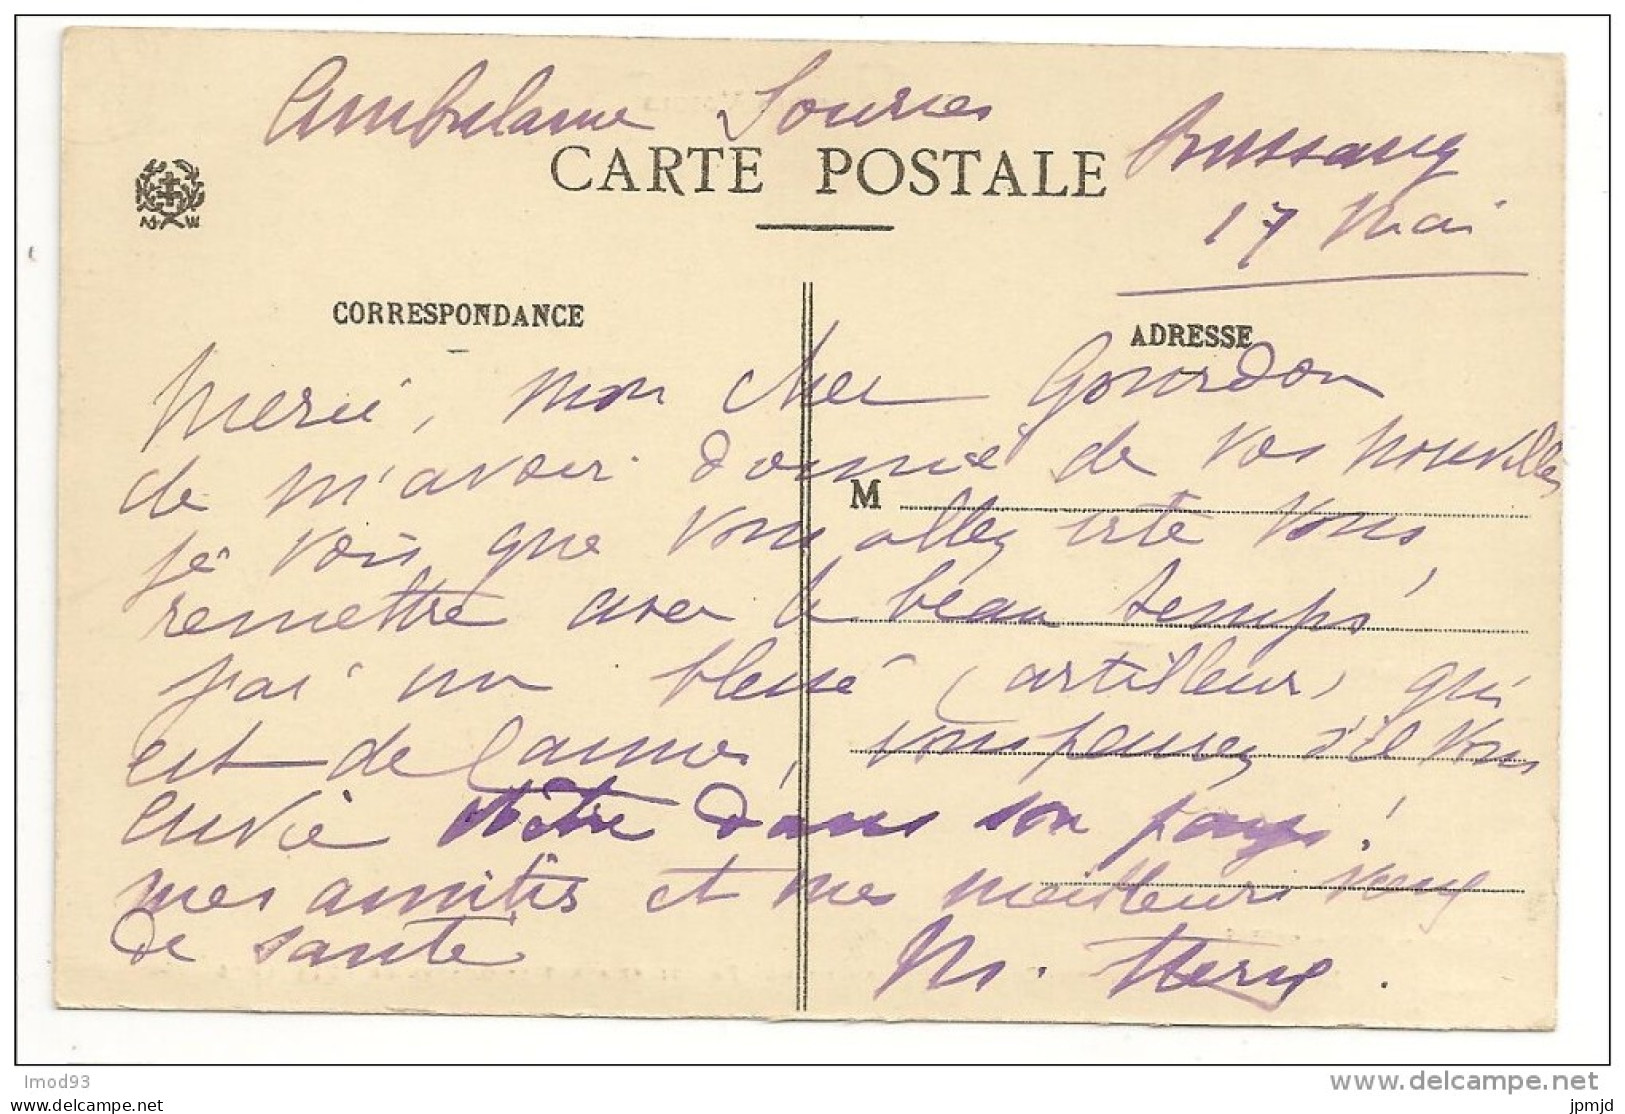 Ambulance Sources
CARTE POSTALE
Bussang
17 Mai
CORRESPONDANCE
ADRESSE
Merci, mon cher Gourdon
de m'avoir donné de vos nouvelles
M
je vois que vous allez vite vous
remettre avec le beau temps!
j'ai un blessé (artilleur) qui
est de Cannes, vous pensez s'il vous
envie d'être dans son pays!
mes amitiés et mes meilleurs vœux
de santé
M.
lmod93
www.delcampe.net
La plus grande Marketplace pour collectionneurs
jpmjd